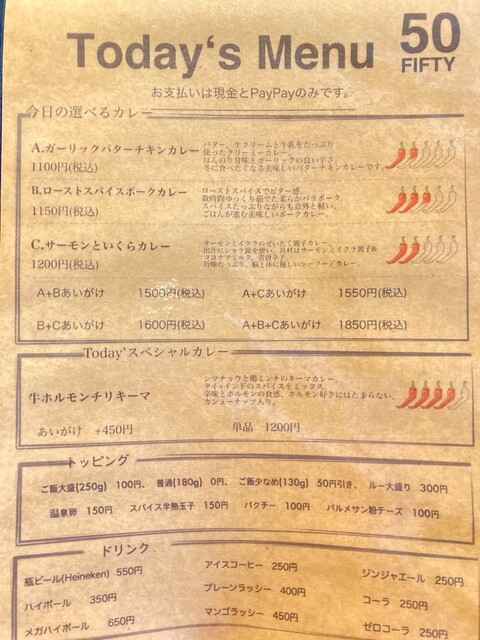 Today‘s Menu
50
FIFTY
お支払いは現金とPayPayのみです。
今日の選べるカレー
A.ガーリックバターチキンカレー
1100円(税込)
バター，生クリームと牛乳をたっぷり
使ったクリーミーカレー。
ほんのり甘味とガーリックの良い辛さ。
冬に食べたくなる美味しいバターチキンカレーです。
B.ローストスパイスポークカレー
1150円(税込)
ローストスパイスでビター感。
数時間ゆっくり茹でた柔らかバラポーク。
スパイスたっぷりながらも意外と軽い。
ごはんが進む美味しいポークカレー。
C.サーモンといくらカレー
1200円(税込)
サーモンとイクラのぜいたく親子カレー。
出汁にシャケ節を使い、具材はサーモンとイクラ親子&
ココナツミルク、青唐辛子。
旨味たっぷり、脳と体に優しいシーフードカレー。
A+Bあいがけ 1500円(税込) A+Cあいがけ 1550円(税込)
B+Cあいがけ 1600円(税込) A+B+Cあいがけ 1850円(税込)
Today’スペシャルカレー
牛ホルモンチリキーマ
シマチョウと鶏ミンチのキーマカレー。
タイ+インドのスパイスをミックス。
辛味とホルモンの食感、ホルモン好きにはたまらない。
カシューナッツ入り。
あいがけ +450円 単品 1200円
トッピング
ご飯大盛(250g) 100円、 普通(180g) 0円、 ご飯少なめ(130g) 50円引き、 ルー大盛り 300円
温泉卵 150円 スパイス半熟玉子 150円 パクチー 100円 パルメサン粉チーズ 100円
ドリンク
瓶ビール(Heineken) 550円 アイスコーヒー 250円 ジンジャエール 250円
ハイボール 350円 プレーンラッシー 400円 コーラ 250円
メガハイボール 650円 マンゴラッシー 450円 ゼロコーラ 250円